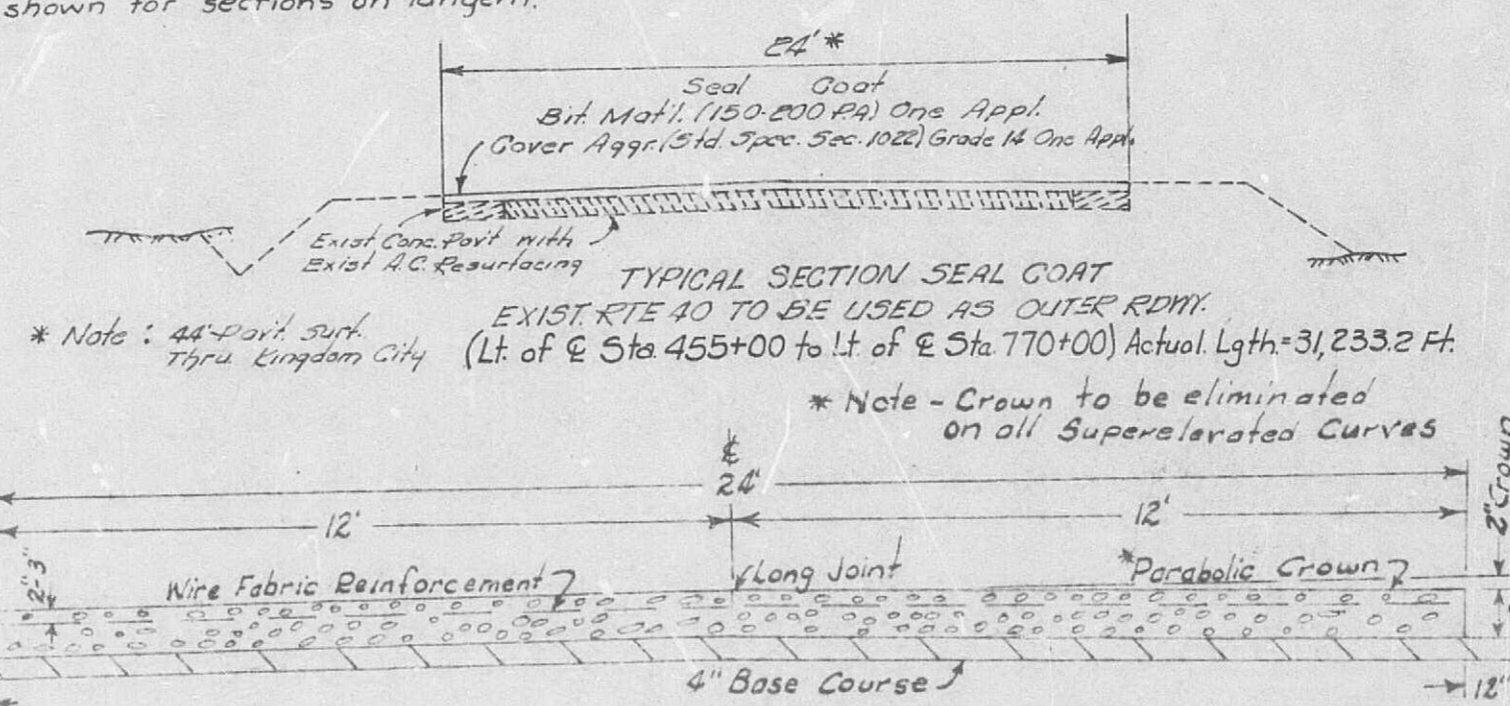 shown for sections on tangent.
24' *
Seal Coat
Bit. Mat'l. (150-200 PA) One Appl.
Cover Aggr. (Std. Spec. Sec. 1022) Grade 14 One Appl.
Exist Conc. Pav't with
Exist A.C. Resurfacing
TYPICAL SECTION SEAL COAT
EXIST. RTE 40 TO BE USED AS OUTER RDWY.
* Note : 44' Pav't. surf.
Thru Kingdom City
(Lt. of ℄ Sta. 455+00 to Lt. of ℄ Sta. 770+00) Actual. Lgth.=31,233.2 Ft.
* Note - Crown to be eliminated
on all Superelevated Curves
℄
24'
12'
12'
2" Crown
2"-3"
Wire Fabric Reinforcement
Long Joint
*Parabolic Crown
4" Base Course
12"